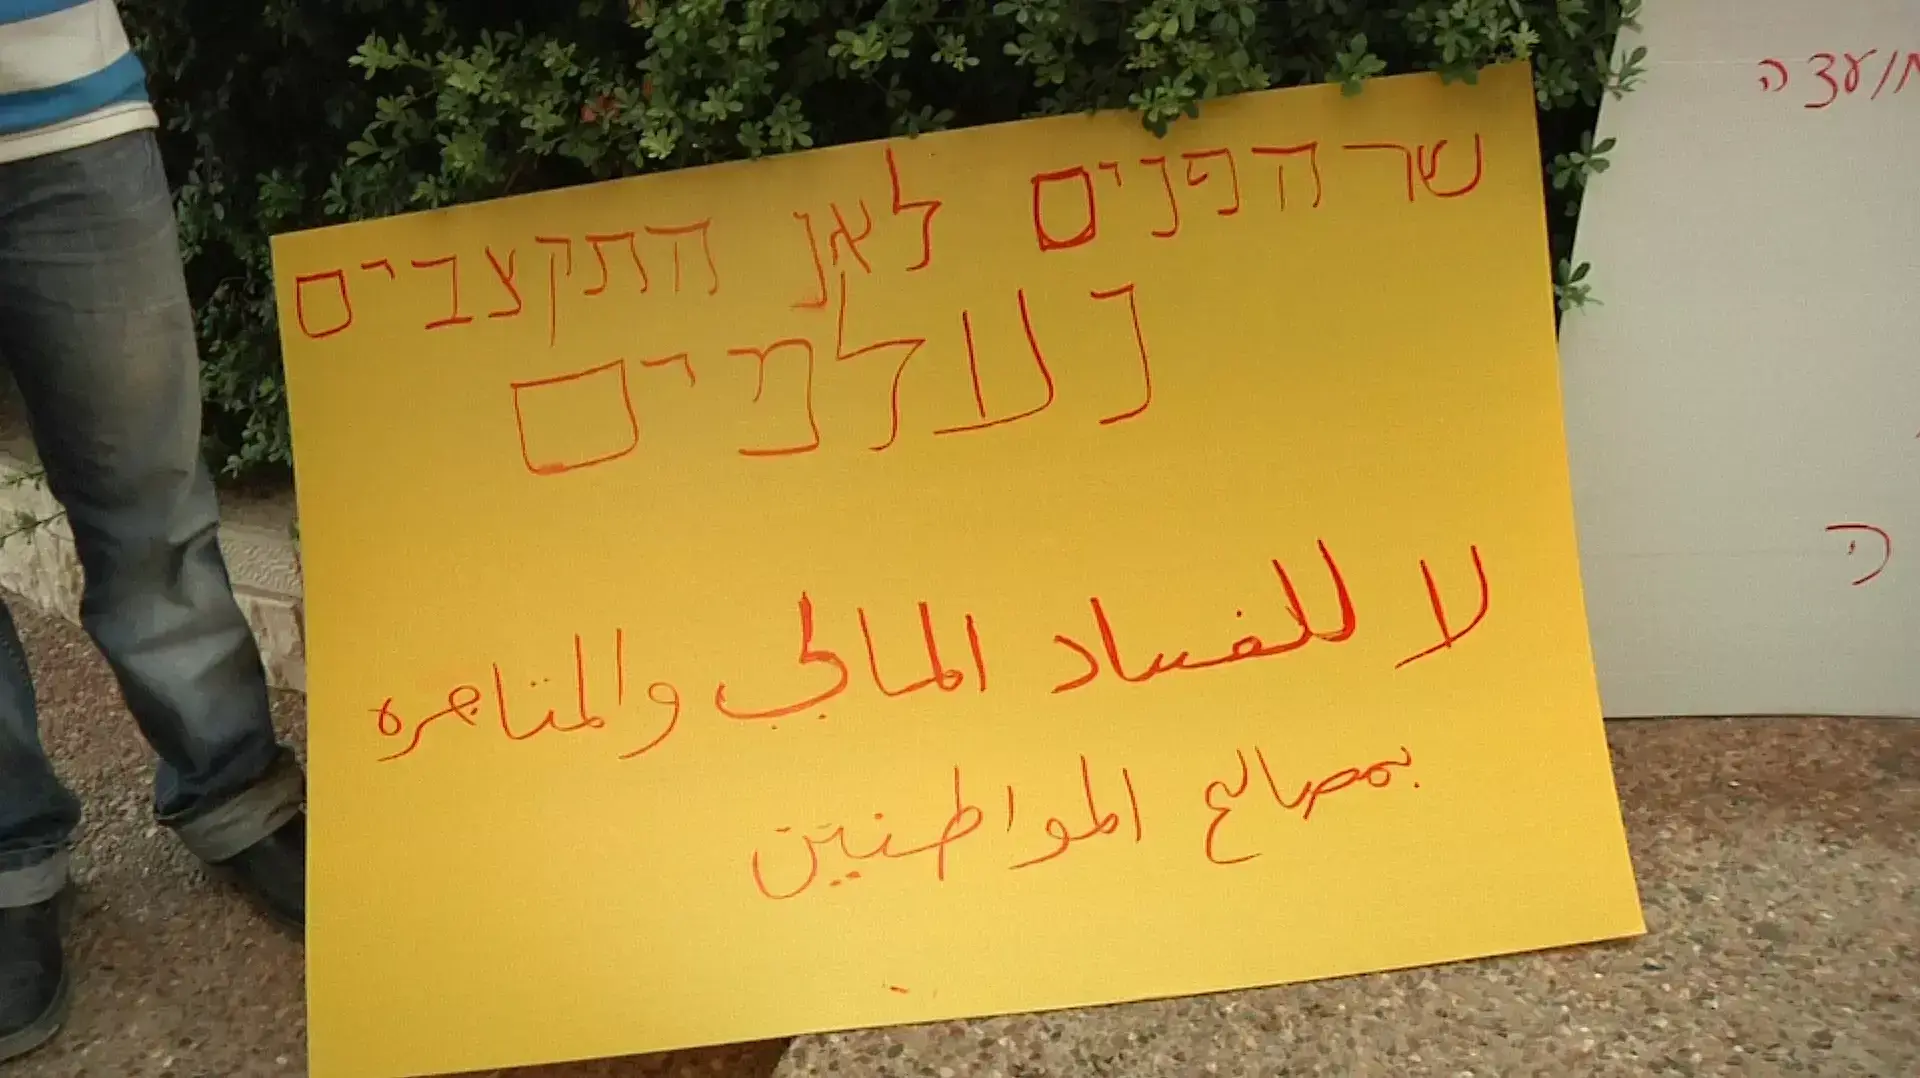 שר הפנים לאן התקצבים
נעלמים
لا للفساد المالي والمتاجره
بمصالح المواطنين
מועצה